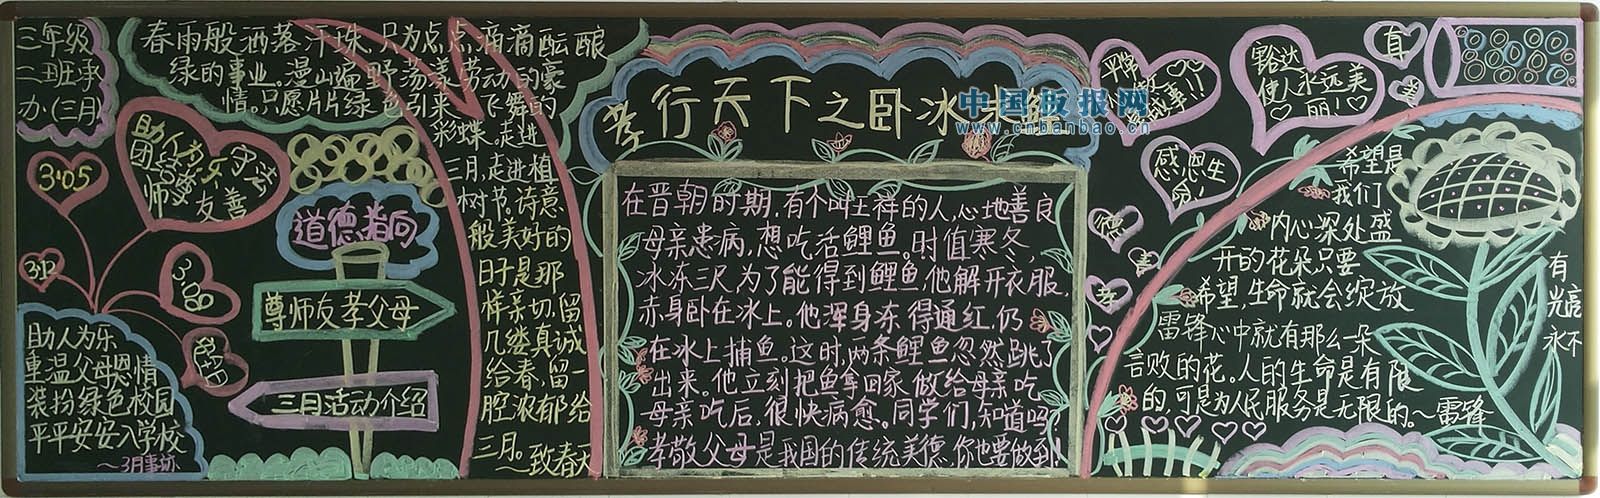 三年级
二班承
办(三月)
春雨般洒落汗珠,只为点点滴滴酝酿
绿的事业。漫山遍野荡漾劳动的豪
情。只愿片片绿色引来飞舞的
彩蝶。走进
三月,走进植
树节,诗意
般美好的
日子是那
样亲切,留
几缕真诚
给春,留一
腔浓郁给
三月。
~致春天
助人为乐 守法
团结友爱
尊师 友善
3.05
3.12
3.08
助人为乐
重温父母恩情
装扮绿色校园
平平安安入学校
~3月事迹
道德指向
尊师友孝父母
三月活动介绍
孝行天下之卧冰求鲤
中国板报网
www.cnbanbao.cn
在晋朝时期,有个叫王祥的人,心地善良
母亲患病,想吃活鲤鱼。时值寒冬,
冰冻三尺,为了能得到鲤鱼,他解开衣服,
赤身卧在冰上。他浑身冻得通红,仍
在冰上捕鱼。这时,两条鲤鱼忽然跳了
出来。他立刻把鱼拿回家做给母亲吃
母亲吃后,很快病愈。同学们,知道吗
孝敬父母是我国的传统美德,你也要做到!
豁达
使人永远美
丽!
感恩生
命!
真
善
德
善
孝
希望是
我们
内心深处盛
开的花朵只要
希望,生命就会绽放
雷锋心中就有那么一朵
言败的花。人的生命是有限
的,可是为人民服务是无限的~雷锋
有
光亮
永不